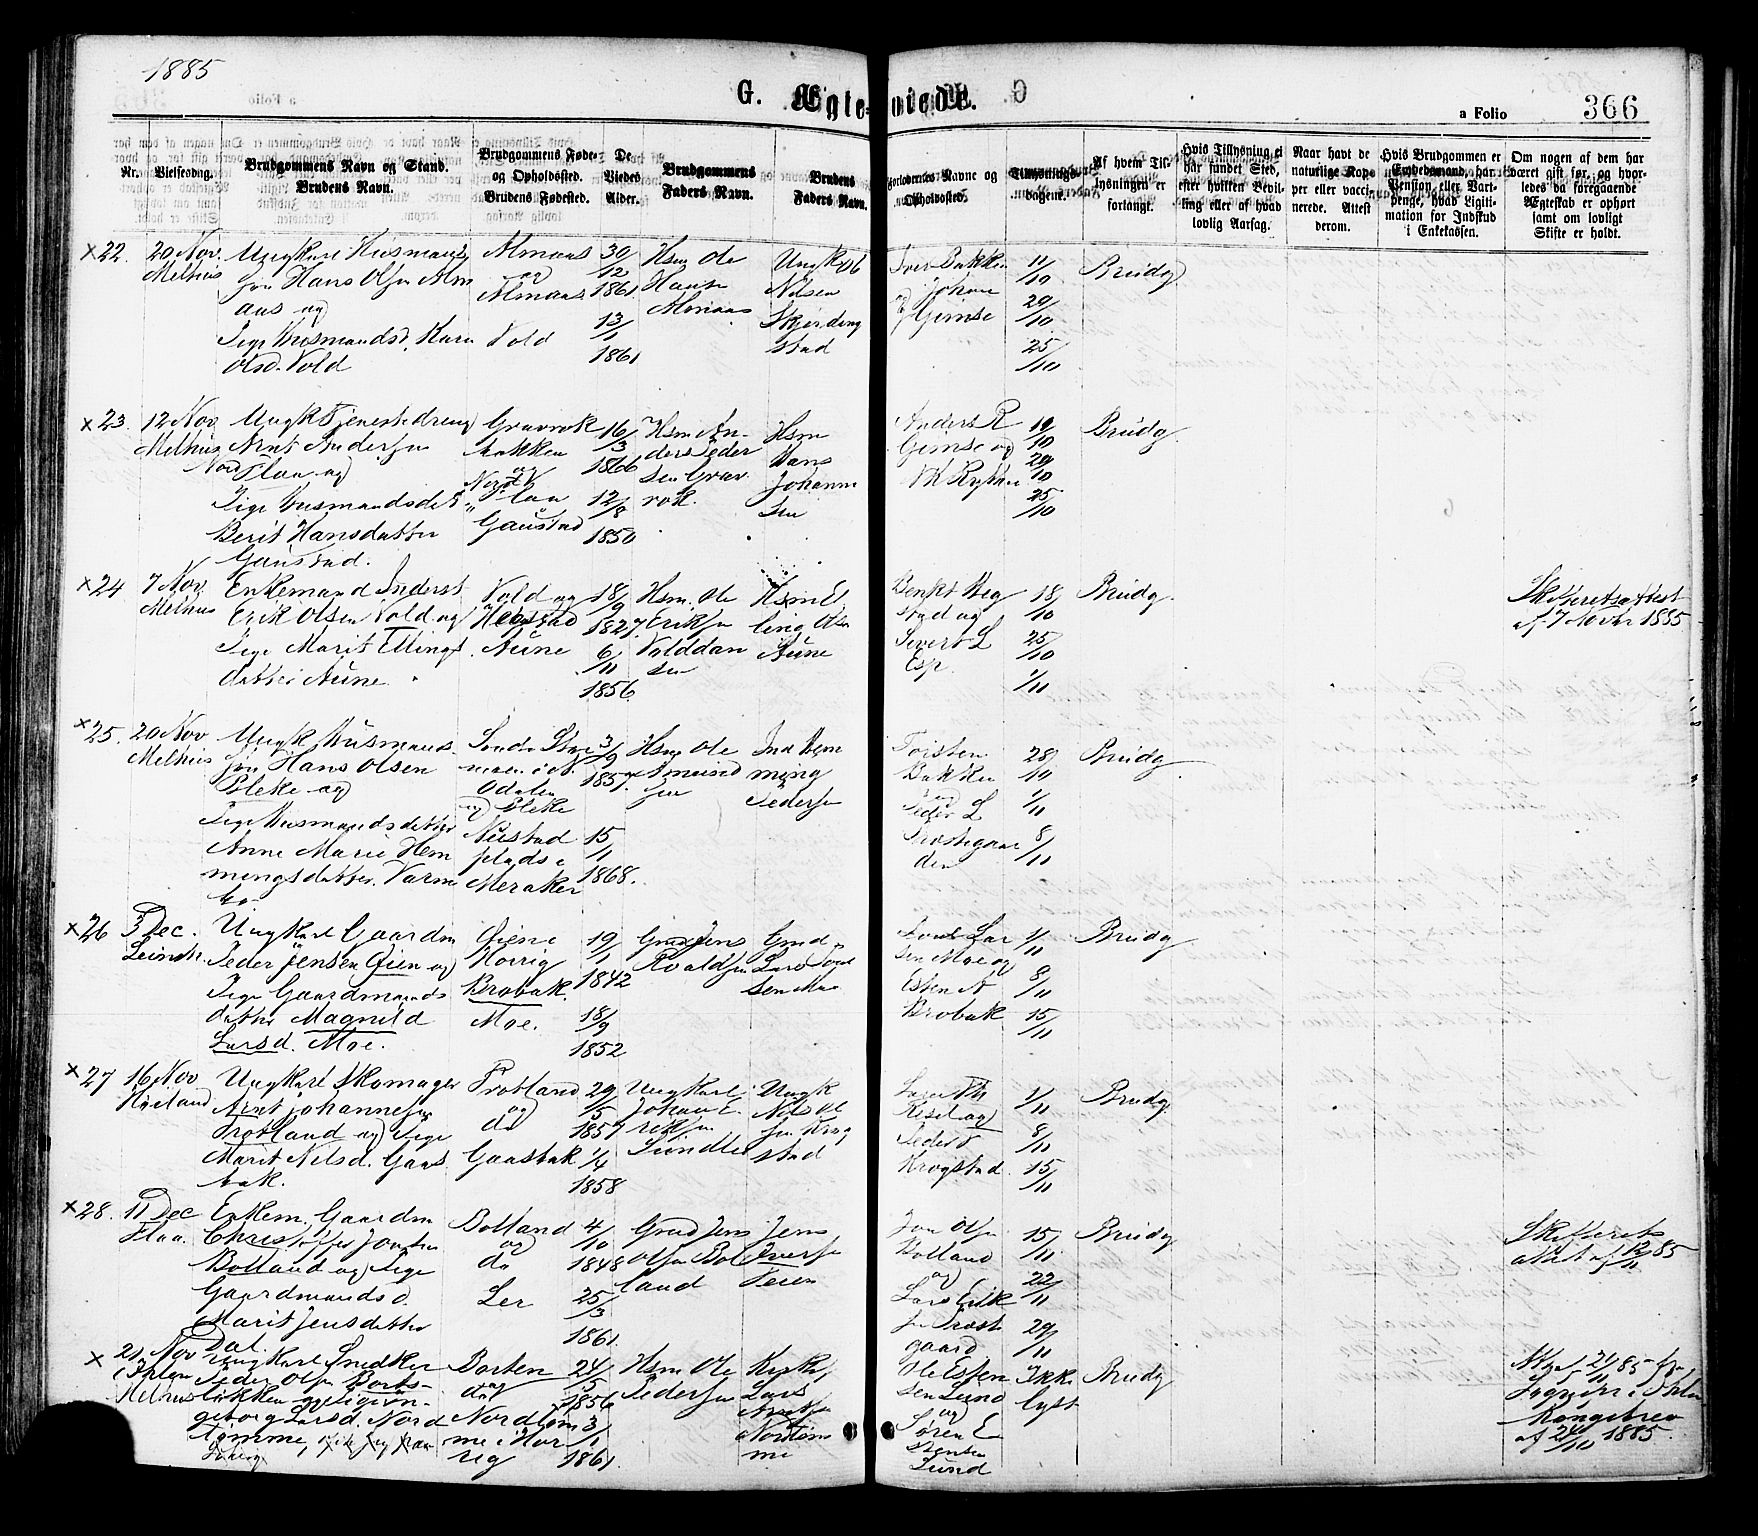 1885
G. Ægteviede.
a Folio 366
Nr.
Vielsesdag.
Brudgommens Navn og Stand.
Brudens Navn.
Brudgommens Føde-
og Opholdssted.
Brudens Fødested.
De
Viedes
Alder.
Brudgommens
Faders Navn.
Brudens
Faders Navn.
Forlovernes Navne og
Opholdssted.
Tillysnings-
dagene.
Af hvem Til-
lysningen er
forlangt.
Hvis Tillysning ei
har fundet Sted,
efter hvilken Bevil-
ling eller af hvad
lovlig Aarsag.
Naar havt de
naturlige Kop-
per eller vacci-
nerede. Attest
derom.
Hvis Brudgommen er
Embedsmand, har
Pension eller Vart-
penge, hvad Ligiti-
mation for Indskud
i Enkekassen.
Om nogen af dem har
været gift før, og hvor-
ledes da foregaaende
Ægteskab er ophørt
samt om lovligt
Skifte er holdt.
x 22.
20 Nov.
Melhus
Ungkarl Husmands
søn Hans Olsen Alm
aas og
Pige Husmandsd. Kari
Olsd. Vold
Almaas
og
Almaas
Vold
30/12
1861
13/1
1861
Hsm Ole
Hansen
Almaas
Ungk Ole
Nilsen
Skjerding
stad
Iver Bakken
og Johan
Gimse
11/10
20/10
25/10
Brudg
x 23.
12 Nov
Melhus
Ungk Tjenestedreng
Arnt Andersen
Nordflaa og
Pige Husmandsdat
Berit Hansdatter
Gaustad.
Gravrok
bakken
og
Nordflaa
Gaustad
16/3
1866
12/8
1850
Hsm An-
ders Peder
sen Grav
rok.
Hsm
Hans
Johanne
sen
Anders R
Gimse og
19/10
20/10
25/10
Brudg.
x 24
7 Nov
Melhus
Enkemand Inderst
Erik Olsen Vold og
Pige Marit Ellings
datter Aune.
Vold og
Hegstad
Aune
18/9
1827.
6/11
1856.
Hsm. Ole
Eriksen
Volddan
sen
Hsm El
ling Olsen
Aune
Benkt Heg
stad og
Sivert L
Esp.
18/10
25/10
1/11
Brudg
Skifteretsattest
af 7 Novbr 1885
x 25.
20 Nov
Melhus
Ungk Husmands
søn Hans Olsen
Bleke og
Pige Husmandsdatter
Anne Marie Hem
mingsdatter. Varm
bo.
og Bleke
Nustad
plads i
Meraker
3/9
1857.
15/1
1868.
Hsm Ole
Amund
sen
Ind Hem
ming
Pedersen
Torsten
Bakken
og
Peder L
Prestegaar
den
28/10
1/11
8/11
Brudg
x 26
3 Dec.
Leinstr.
Ungkarl Gaardm
Peder Jensen Øien og
Pige Gaardmands
datter Magnild
Larsd. Moe.
Øiene
Horrig
Brobak.
Moe.
19/1
1842
18/9
1852
Grd Jens
Roaldsen
Grd
Lars Tore
sen Moe
Tore Lar
sen Moe og
Esten A
Brobak
1/11
8/11
15/11
Brudg.
x 27
16 Nov
Høiland
Ungkarl Skomager
Arnt Johannesen
Trotland og Pige
Marit Nilsd. Gaas
bak.
Trotland
og
do
Gaasbak
29/5
1857
1/4
1858
Ungkarl
Johan E
riksen
Ungk
Nils Ol
sen Krog
stad
Kisel og
Peder
Krogstad.
1/11
8/11
15/11
Brudg.
x 28.
11 Dec
Flaa.
Enkem. Gaardm
Christoffer Jonsen
Bolland og Pige
Gaardmandsd.
Marit Jensdatter
Dal
Bolland
og
do
Ler
4/10
1848
25/3
1861
Grd Jens
Olsen Bol
land
Jens
Iversen
Jon Olsen
Bolland
og
Lars Erik
sen Prest
gaard
15/11
22/11
29/11
Brudg
Skifterets
attest af 12/11 85
x
21. Nov
i Ihlen
Melhus
Ungkarl Snedker
Peder Olsen Borts-
løkken og Pige Ing-
geborg Larsd. Nord
tømme,
Borten
og
do
Nordtøm
me i Hor
rig
24/5
1856
3/1
1861
Hsm Ole
Pedersen
Lars
Arntsen
Nordtøm
me
Ole Esten
sen Lund
og
Søren E
stensen
Lund
Ikke
lyst
Brudg
Kongebrev
af 24/10 1885